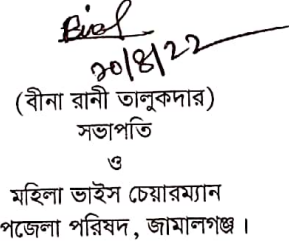 ২০/৪/২২
(বীনা রানী তালুকদার)
সভাপতি
ও
মহিলা ভাইস চেয়ারম্যান
পজেলা পরিষদ, জামালগঞ্জ।